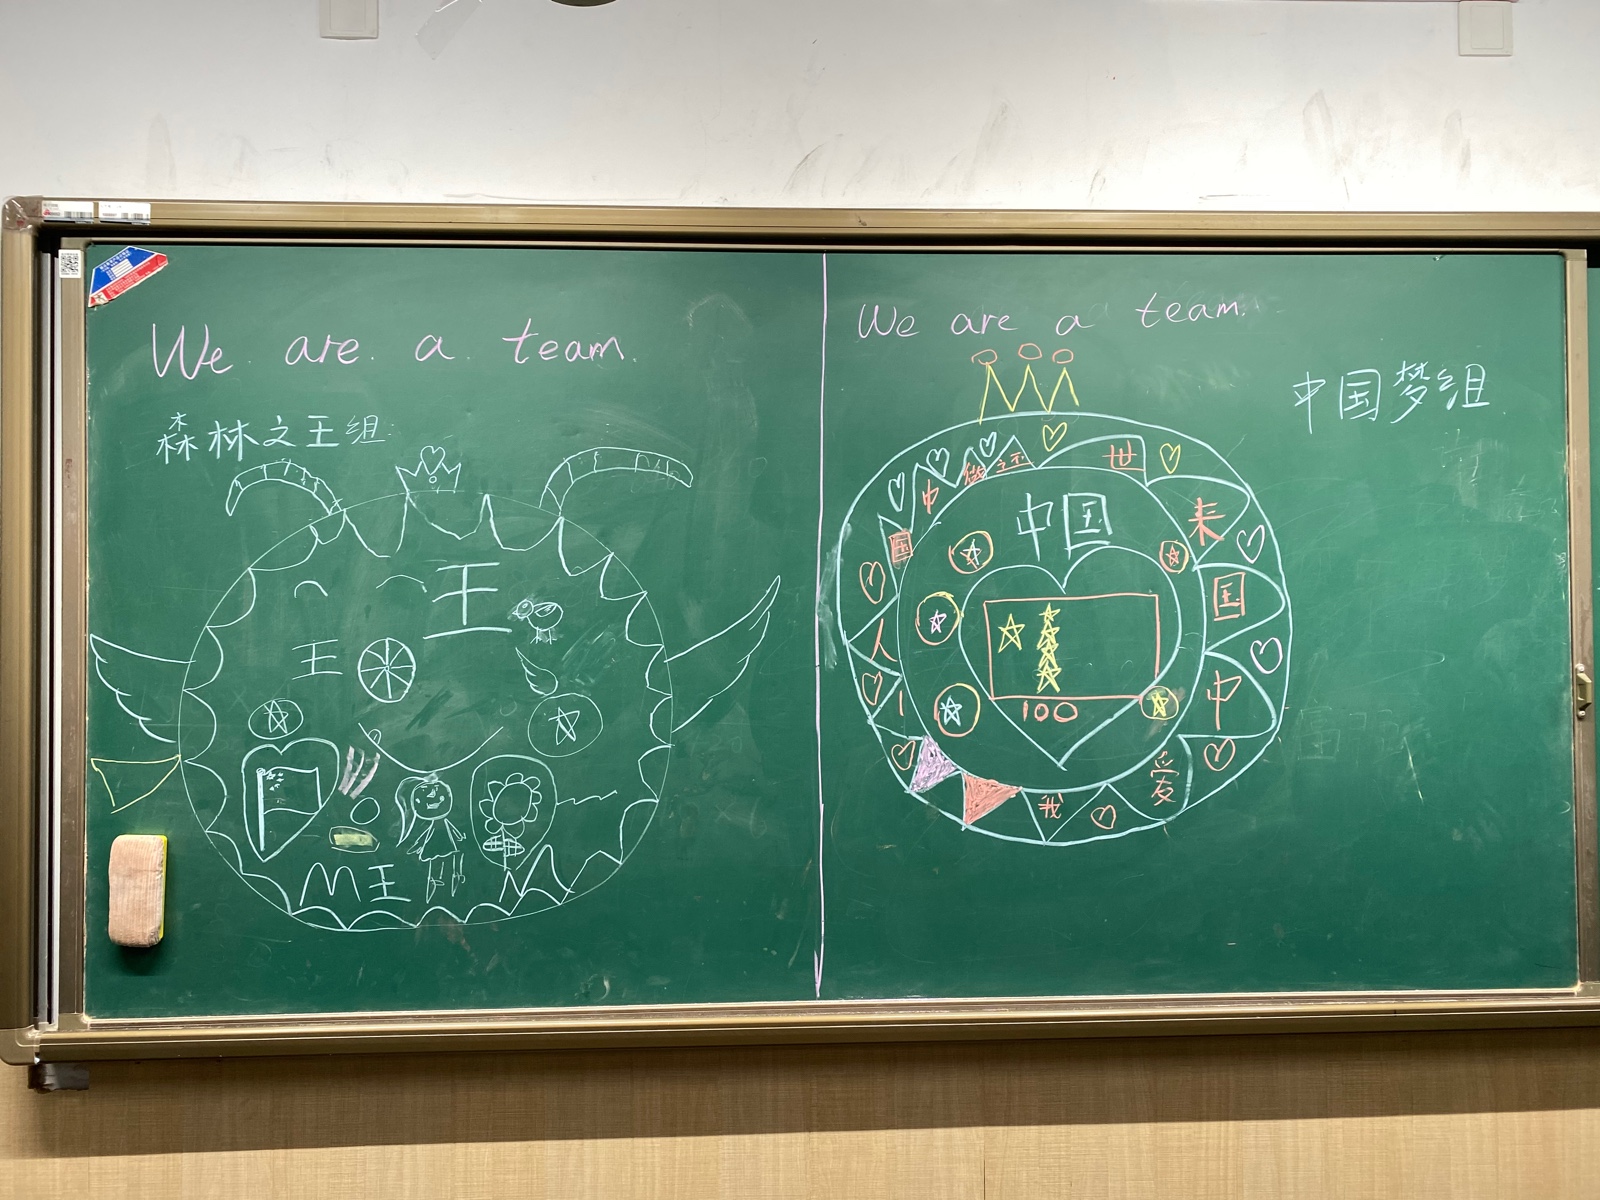 We are a team.
森林之王组
王
王
M王
We are a team.
中国梦组
世
来
国
中
爱
我
人
国
中
中国
100